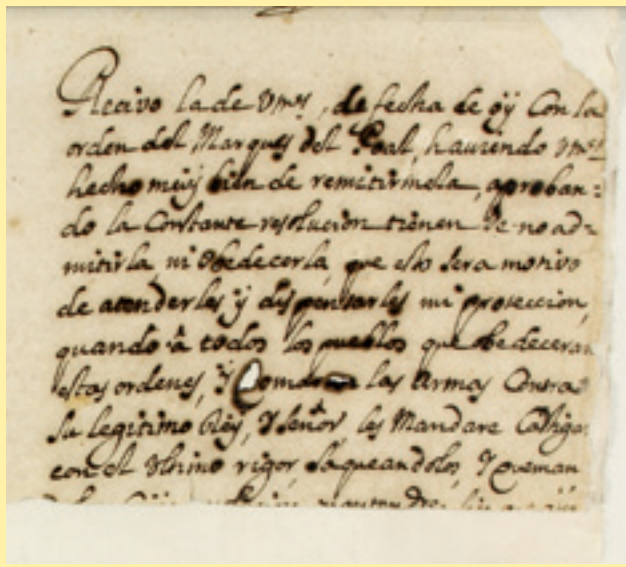 Recivo la de Vms, de fecha de oÿ Con la
orden del Marques del Poal, hauiendo Vms
hecho muy bien de remitirmela, aproban=
do la Constante resolucion tienen de no ad=
mitirla, ni obedecerla, que esto sera motivo
de atenderles y dispensarles mi proteccion,
quando â todos los pueblos que obedeceran
estas ordenes, y las Armas Contra
su legitimo Rey, y señor, les Mandare Castigar
con el vltimo rigor, saqueandolos, y queman